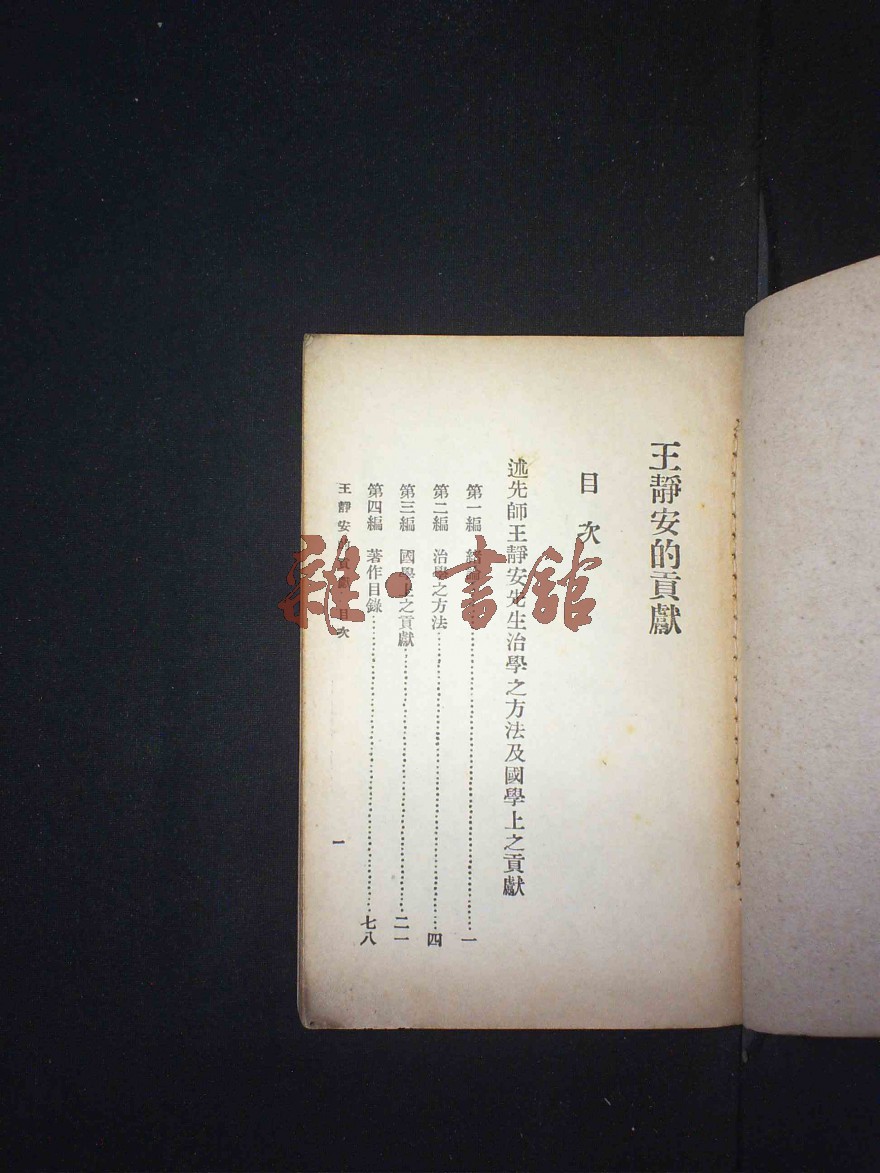 王靜安的貢獻
目次
述先師王靜安先生治學之方法及國學上之貢獻
第一編 緒論……一
第二編 治學之方法……四
第三編 國學上之貢獻……二一
第四編 著作目錄……七八
王靜安的貢獻 目次
一
雜·書館